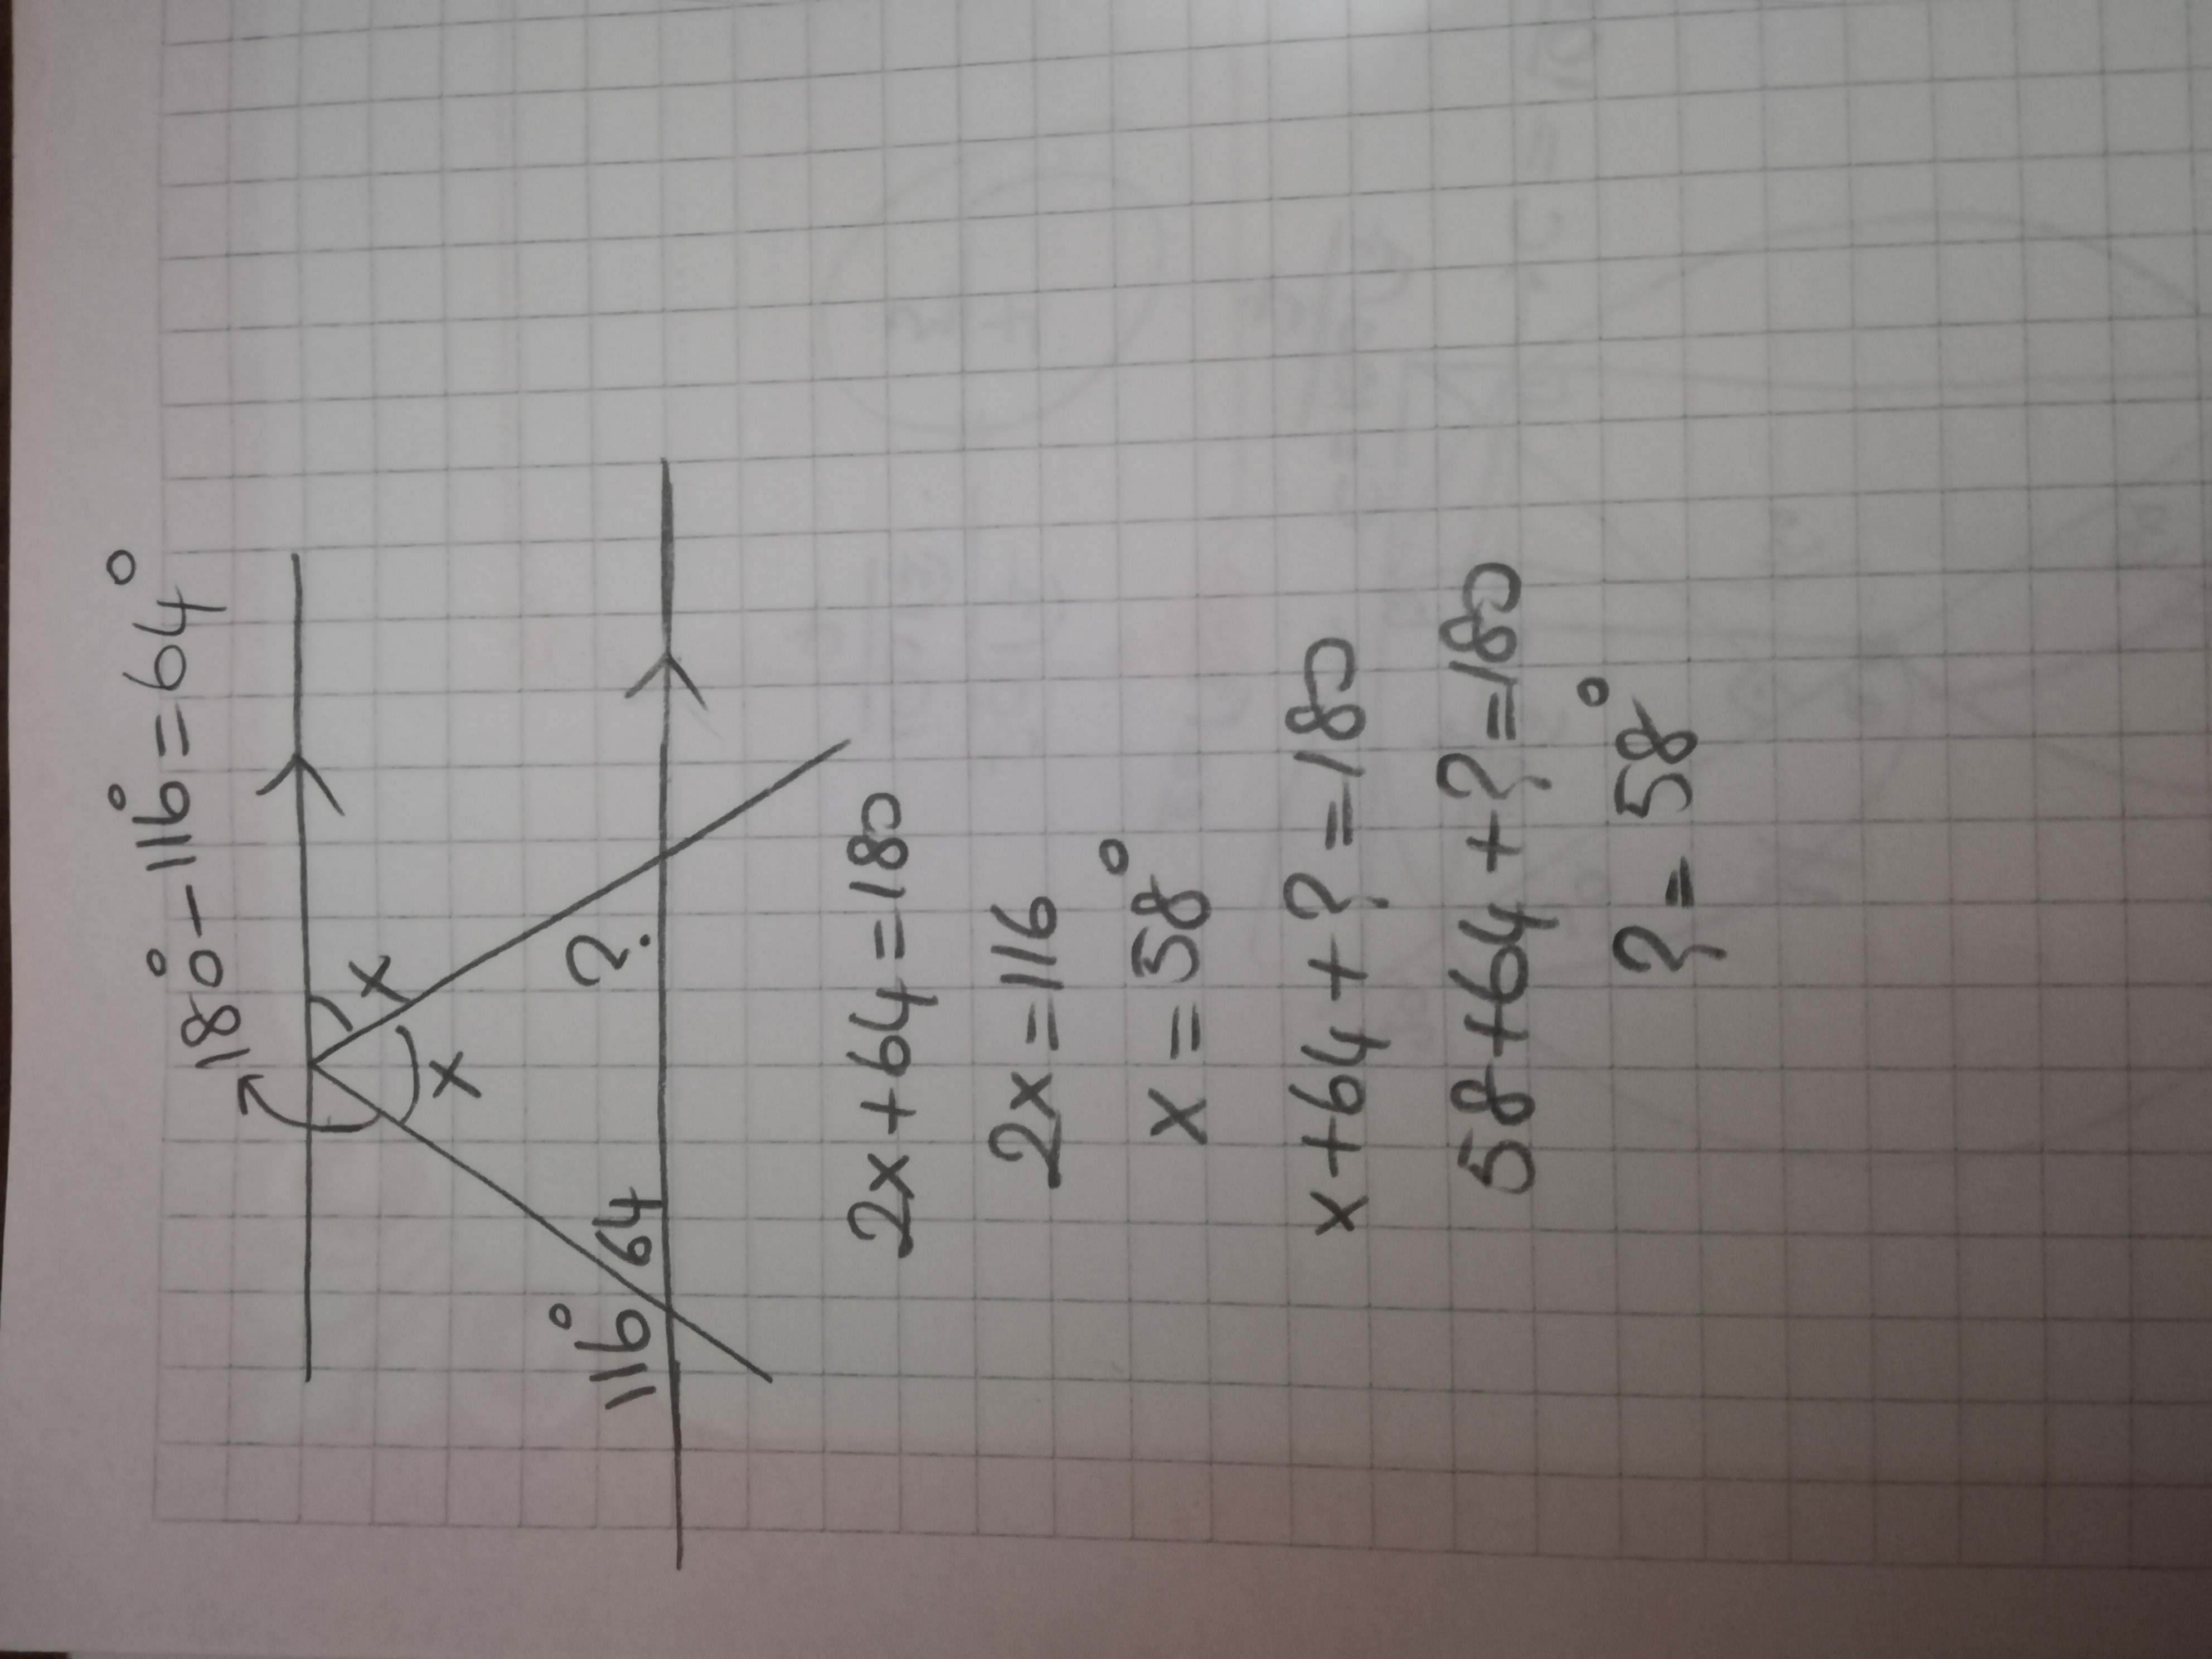 180° - 116° = 64°
x
x
116° 64
?
2x + 64 = 180
2x = 116
x = 58°
x + 64 + ? = 180
58 + 64 + ? = 180
? = 58°